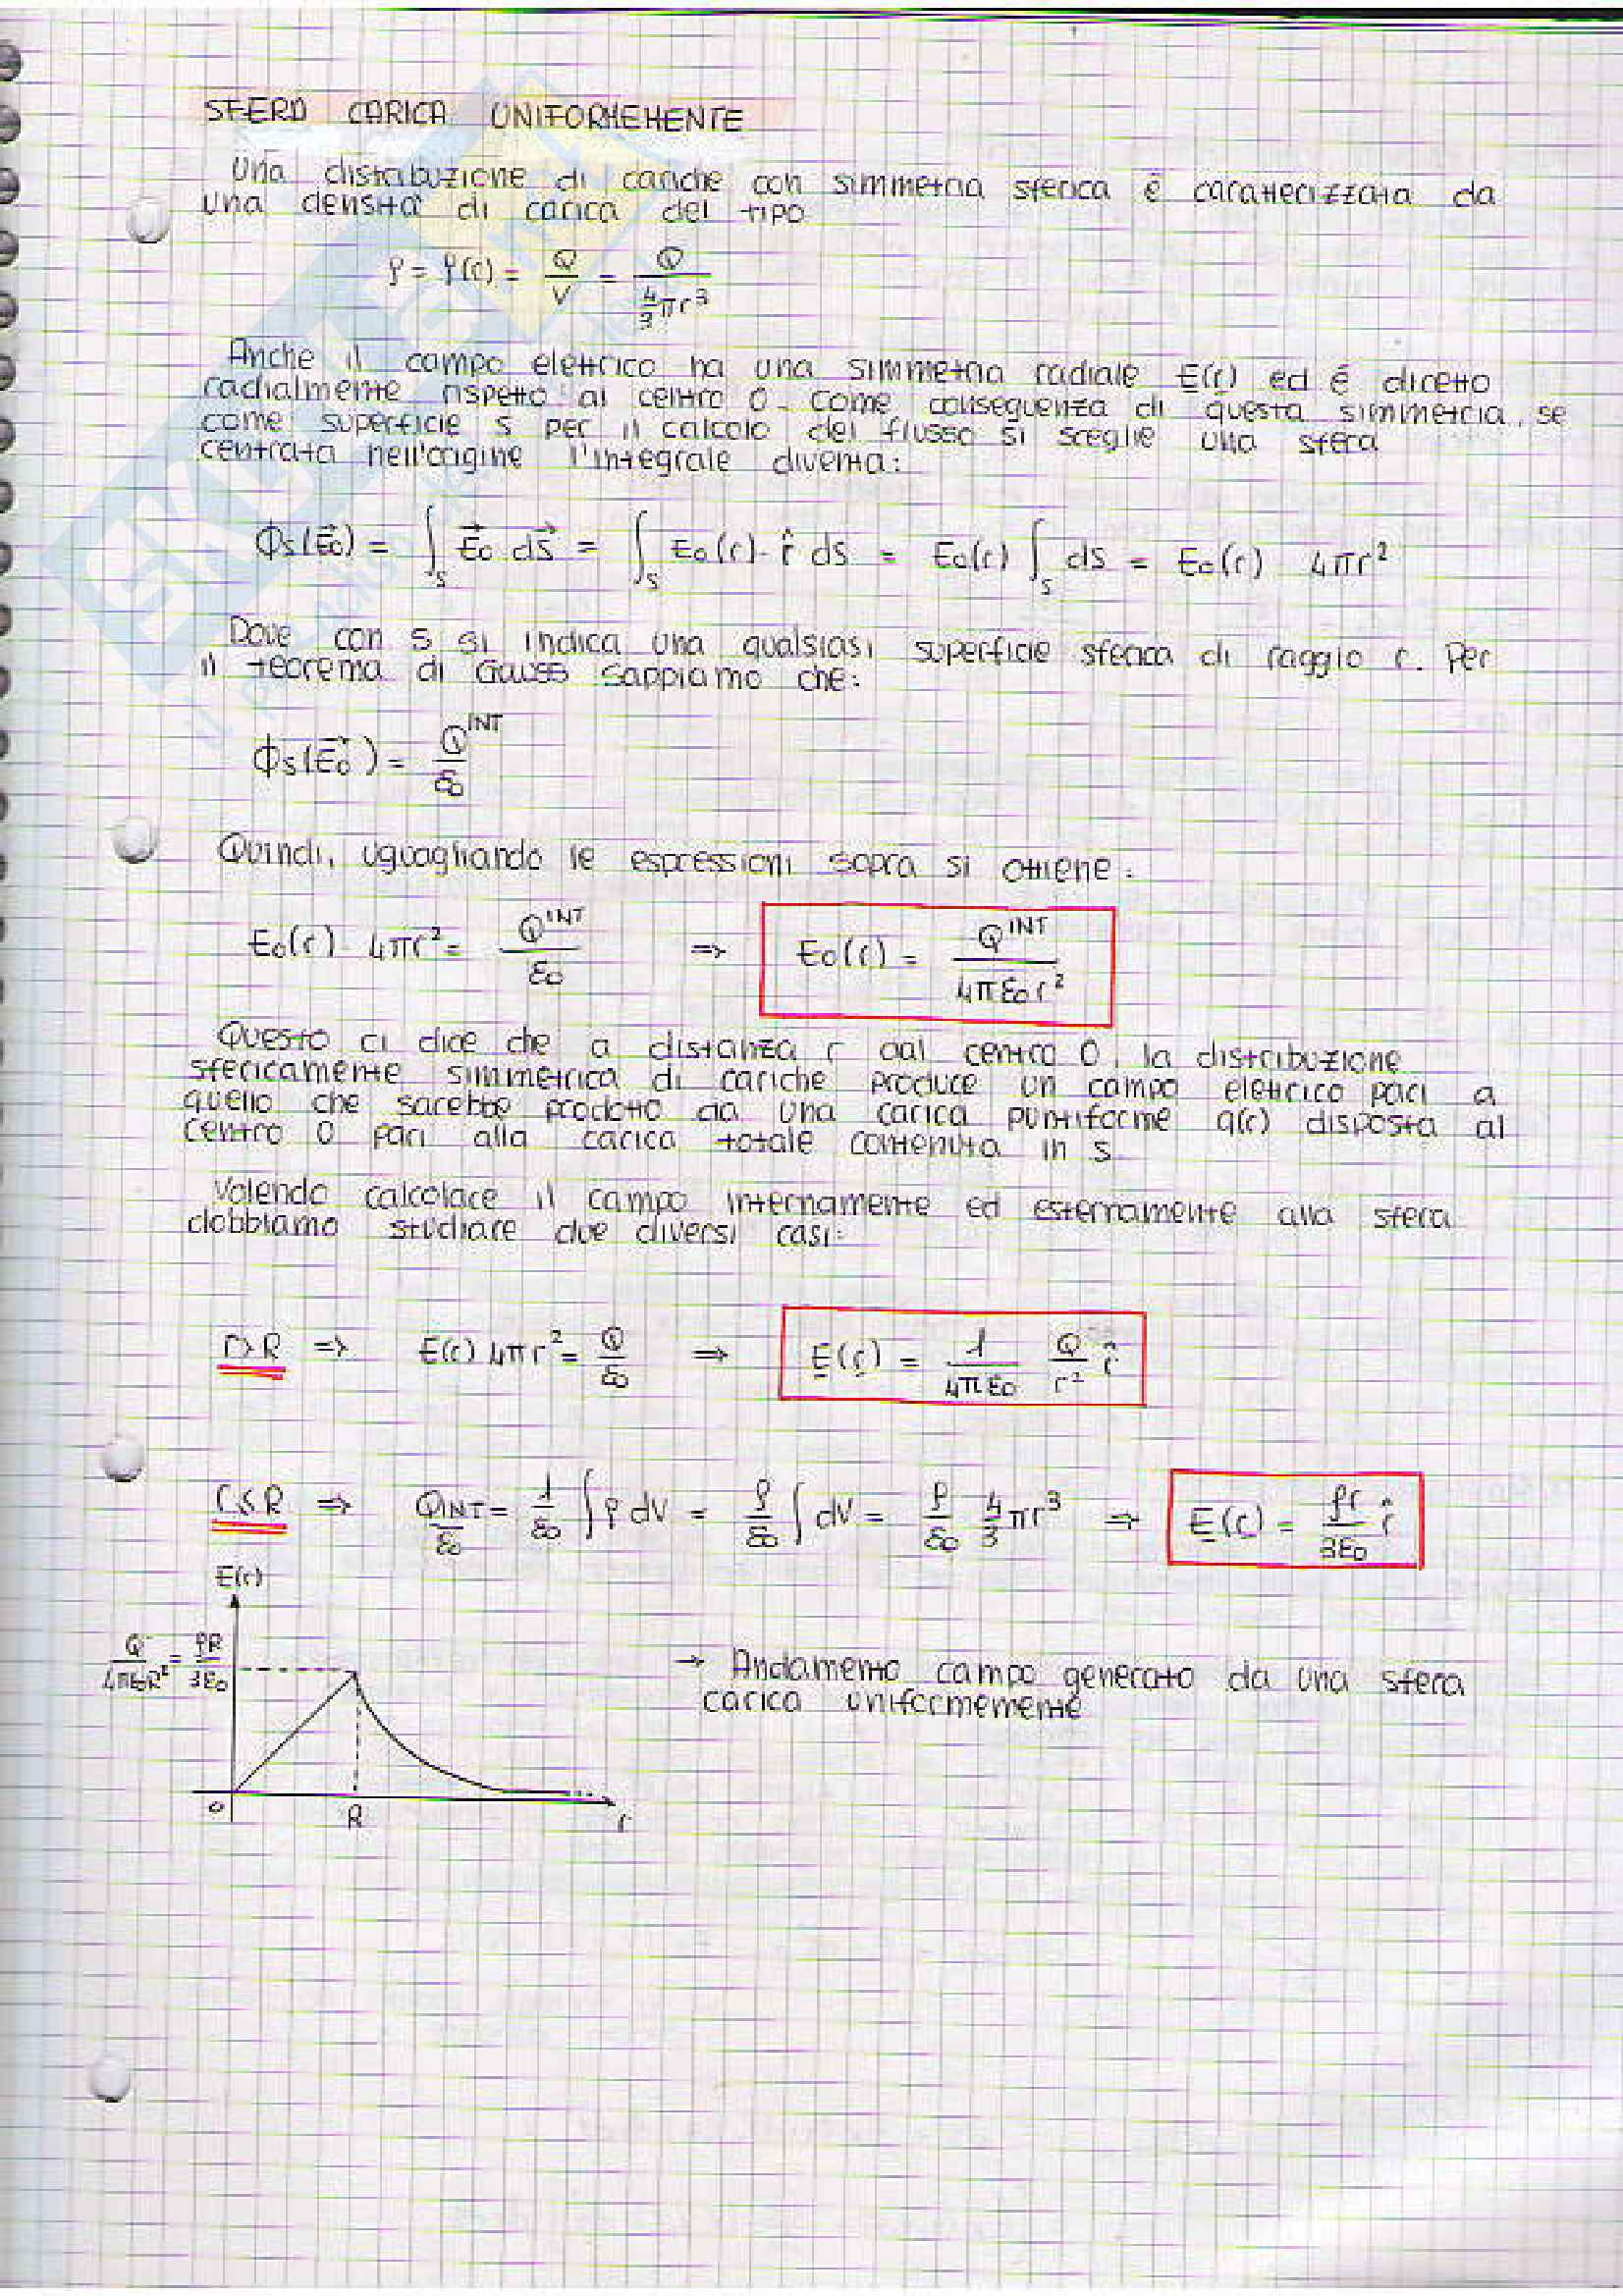 SFERA CARICA UNIFORMEMENTE
Una distribuzione di cariche con simmetria sferica è caratterizzata da
una densità di carica del tipo
ρ = ρ(r) = Q/V = Q/(4/3 πr³)
Anche il campo elettrico ha una simmetria radiale E(r) ed è diretto
radialmente rispetto al centro O. Come conseguenza di questa simmetria, se
come superficie S per il calcolo del flusso si sceglie una sfera
centrata nell'origine l'integrale diventa:
Φs(E⃗₀) = ∫s E⃗₀ dS⃗ = ∫s E₀(r)· r̂ dS = E₀(r) ∫s dS = E₀(r) 4πr²
Dove con S si indica una qualsiasi superficie sferica di raggio r. Per
il teorema di Gauss sappiamo che:
Φs(E⃗₀) = Q^INT/ε₀
Quindi, uguagliando le espressioni sopra si ottiene:
E₀(r) 4πr² = Q^INT/ε₀ ⇒ E₀(r) = Q^INT/(4πε₀r²)
Questo ci dice che a distanza r dal centro O, la distribuzione
sfericamente simmetrica di cariche produce un campo elettrico pari a
quello che sarebbe prodotto da una carica puntiforme q(r) disposta al
centro O pari alla carica totale contenuta in S
Volendo calcolare il campo internamente ed esternamente alla sfera
dobbiamo studiare due diversi casi:
r>R ⇒ E(r) 4πr² = Q/ε₀ ⇒ E(r) = 1/(4πε₀) Q/r² r̂
r≤R ⇒ Q_INT/ε₀ = 1/ε₀ ∫ρ dV = ρ/ε₀ ∫dV = ρ/ε₀ 4/3 πr³ ⇒ E(r) = ρr/(3ε₀) r̂
E(r)
Q/(4πε₀R²) = ρR/(3ε₀)
→ Andamento campo generato da una sfera
carica uniformemente
O R r